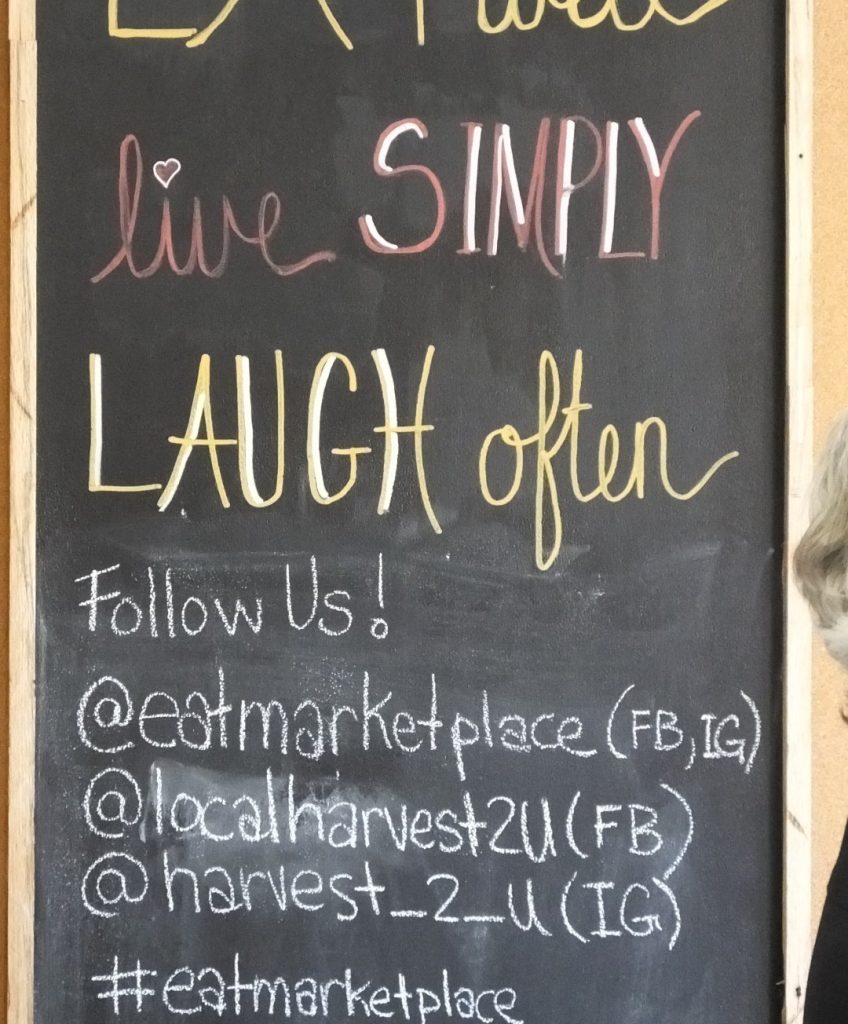 EAT well
live SIMPLY
LAUGH often
Follow Us!
@eatmarketplace (FB, IG)
@localharvest2U (FB)
@harvest_2_u (IG)
#eatmarketplace